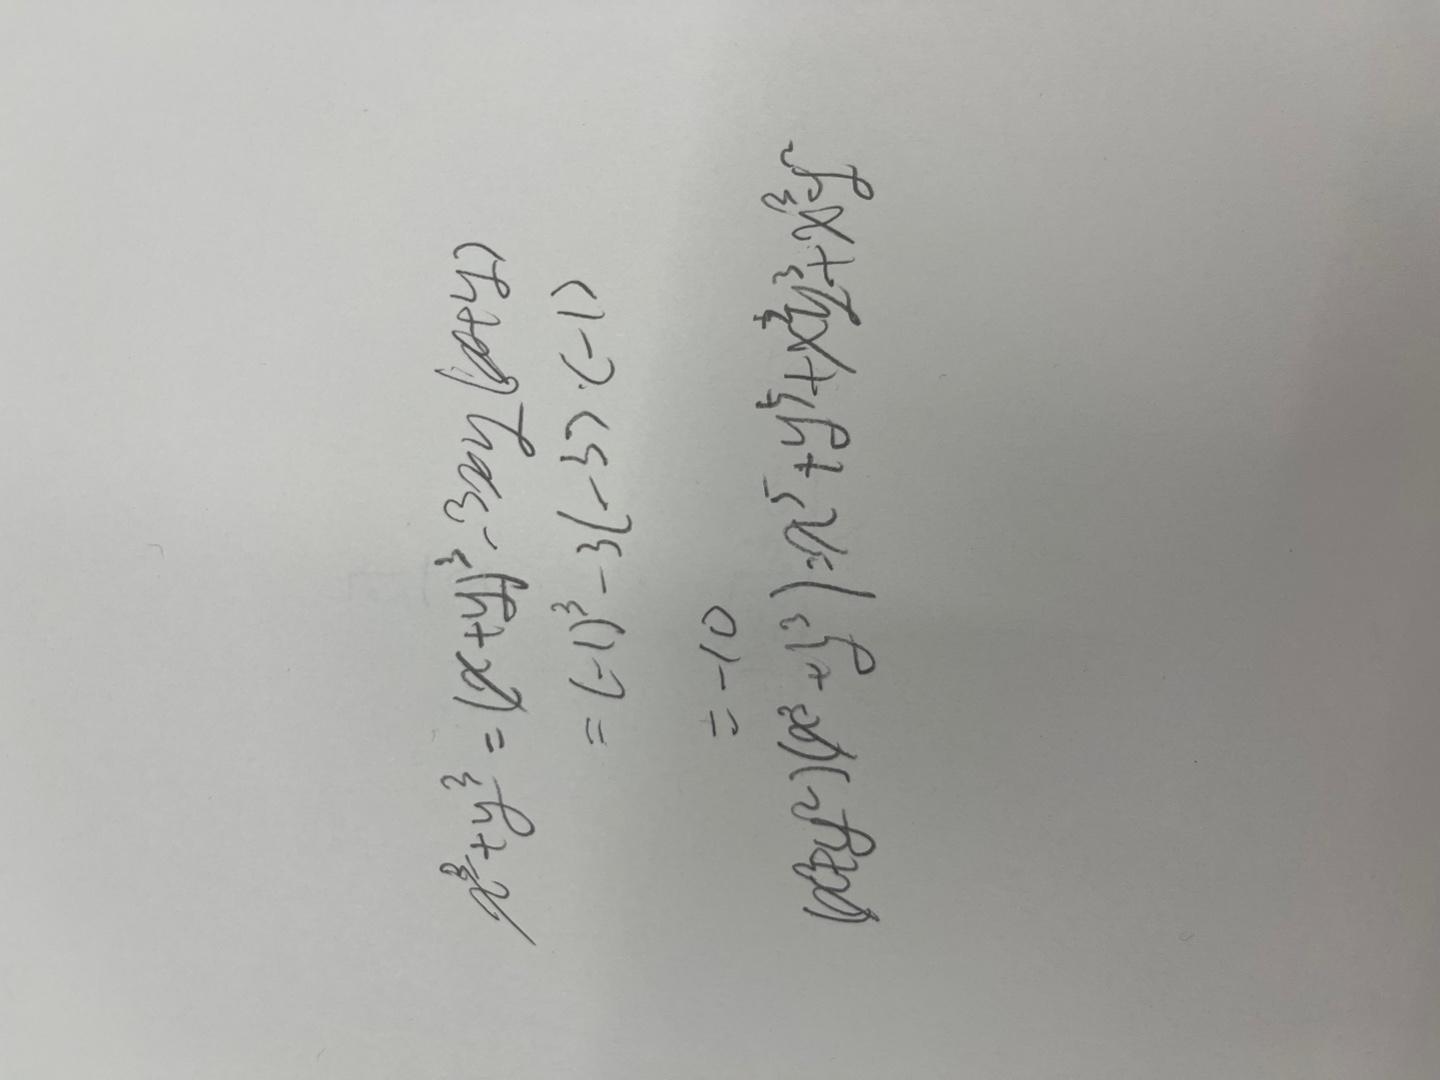 x³+y³ = (x+y)³-3xy(x+y)
= (-1)³-3(-3)(-1)
= -10
(x²+y²)(x³+y³)=x⁵+y⁵+x²y³+x³y²